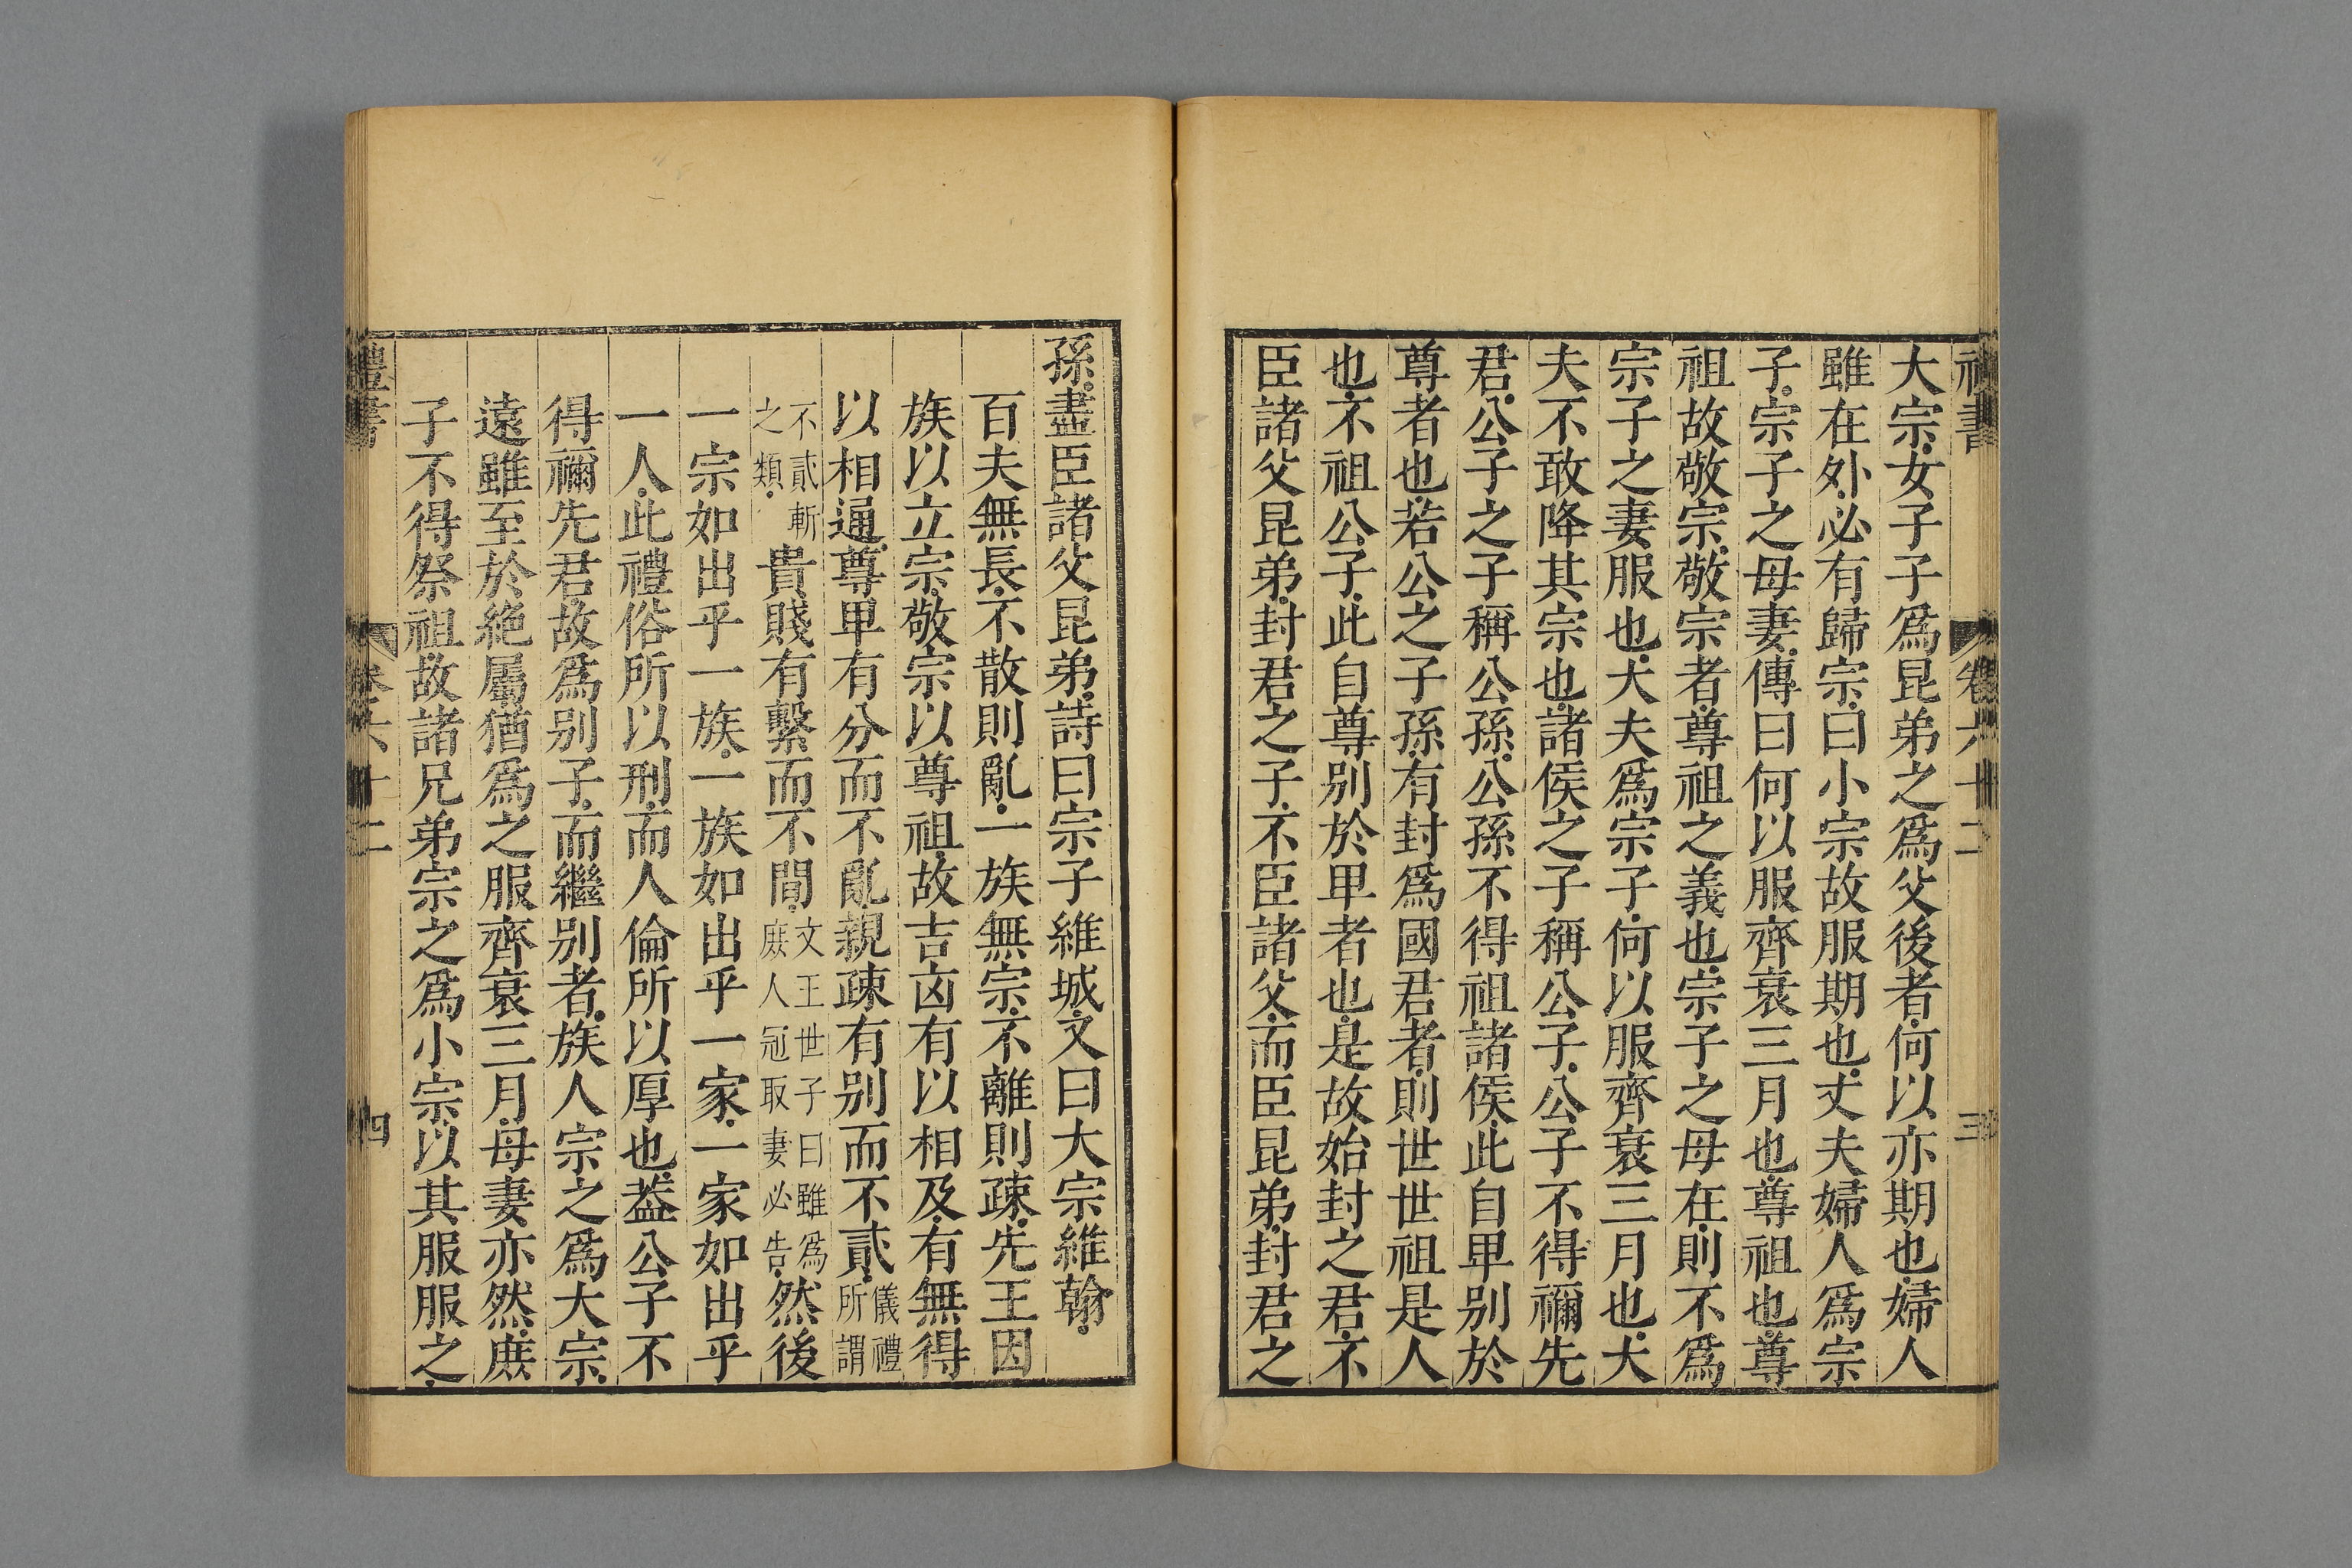 禮書 卷六十二 三
大宗女子子爲昆弟之爲父後者何以亦期也婦人
雖在外必有歸宗曰小宗故服期也丈夫婦人爲宗
子宗子之母妻傳曰何以服齊衰三月也尊祖也尊
祖故敬宗敬宗者尊祖之義也宗子之母在則不爲
宗子之妻服也大夫爲宗子何以服齊衰三月也大
夫不敢降其宗也諸侯之子稱公子公子不得禰先
君公子之子稱公孫公孫不得祖諸侯此自卑別於
尊者也若公之子孫有封爲國君者則世世祖是人
也不祖公子此自尊別於卑者也是故始封之君不
臣諸父昆弟封君之子不臣諸父而臣昆弟封君之
孫盡臣諸父昆弟詩曰宗子維城文曰大宗維翰
百夫無長不散則亂一族無宗不離則疎先王因
族以立宗敬宗以尊祖故吉凶有以相及有無得
以相通尊卑有分而不亂親疎有别而不貳儀禮所謂
不貳斬之類貴賤有繫而不間文王世子曰雖爲庶人冠取妻必告然後
一宗如出乎一族一族如出乎一家一家如出乎
一人此禮俗所以刑而人倫所以厚也葢公子不
得禰先君故爲别子而繼别者族人宗之爲大宗
遠雖至於絶屬猶爲之服齊衰三月母妻亦然庶
子不得祭祖故諸兄弟宗之爲小宗以其服服之
禮書 卷六十二 四